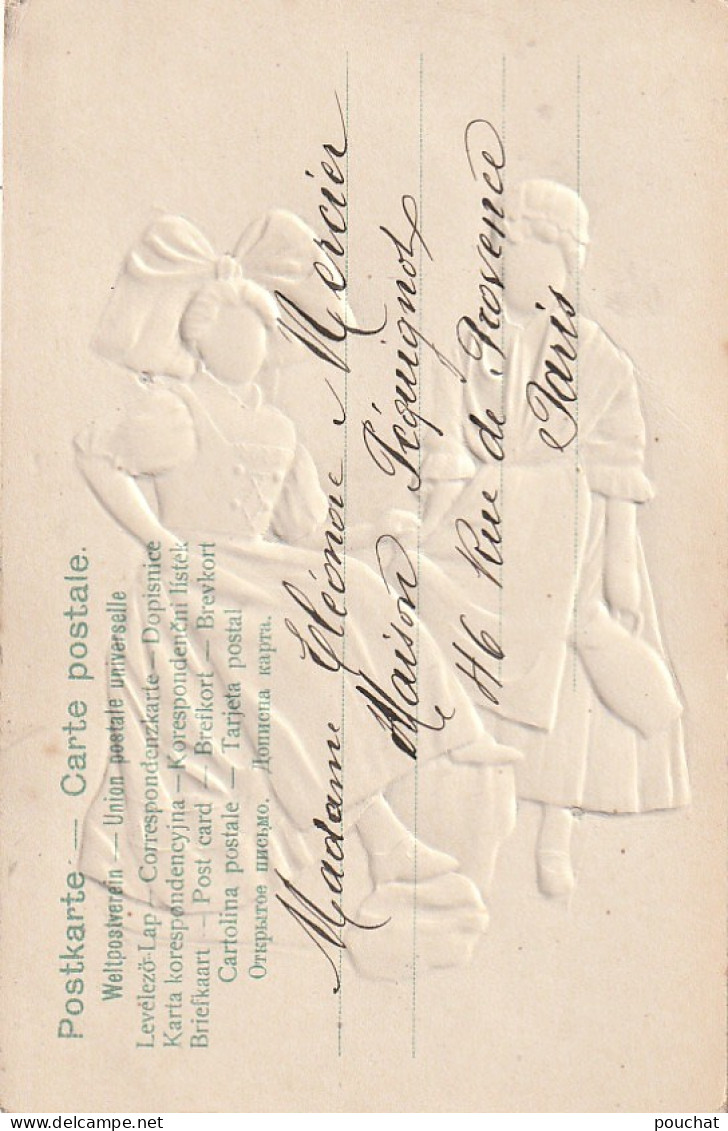 Postkarte — Carte postale.
Weltpostverein — Union postale universelle
Levélező-Lap — Correspondenzkarte — Dopisnice
Karta korespondencyjna — Korespondenční lístek
Briefkaart — Post card — Brefkort — Brevkort
Cartolina postale — Tarjeta postal
Открытое письмо. Дописна карта.
Madame Eléonore Mercier
Maison Péquignot
46 Rue de Provence
Paris
pouchat